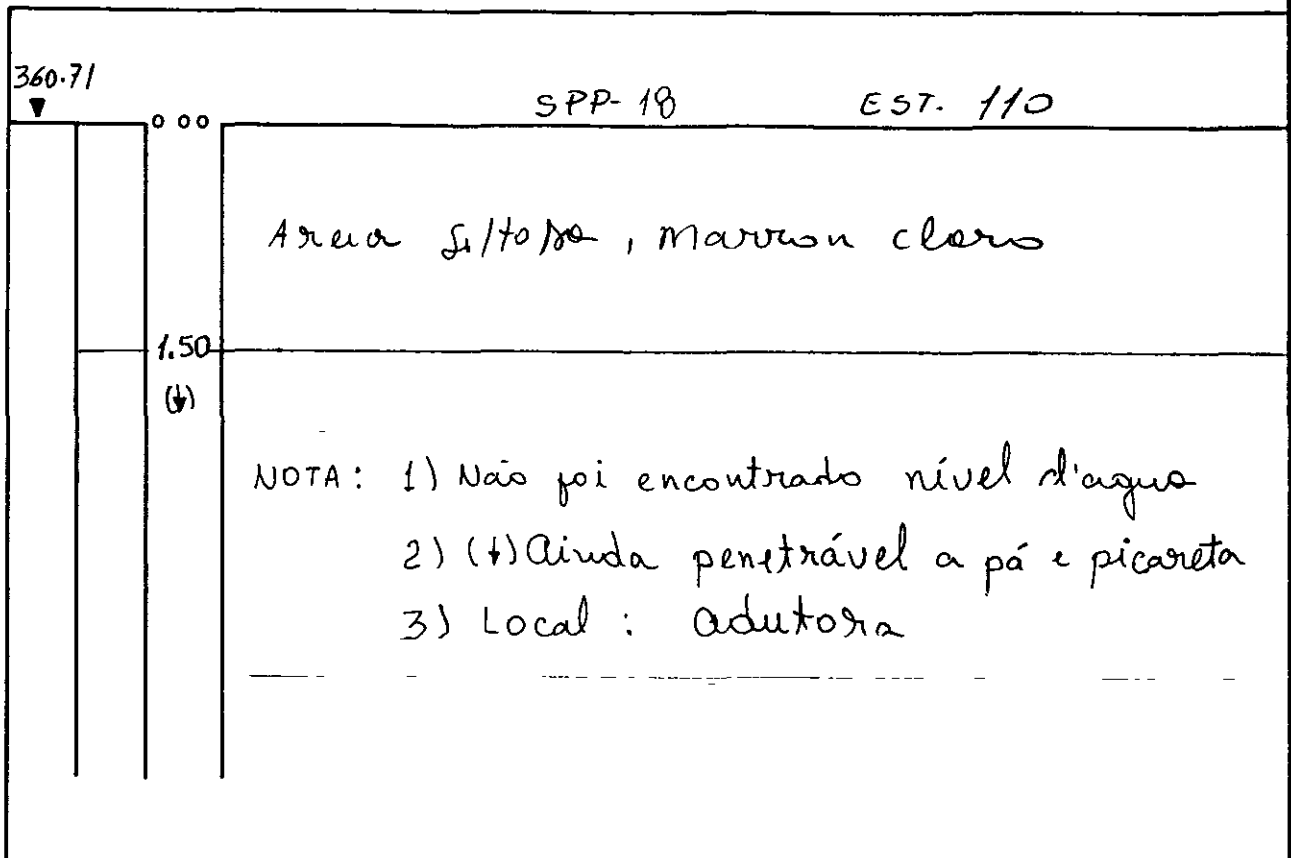 360.71
SPP-18 EST. 110
0 00
Areia siltosa, marron claro
1.50
(↓)
NOTA: 1) Não foi encontrado nível d'agua
2) (↓) Ainda penetrável a pá e picareta
3) Local: adutora